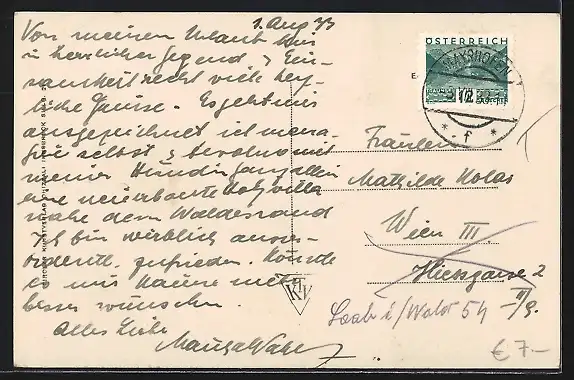 1. Aug 33
Von meinem Urlaub
in herrlicher Gegend & Ein-
samkeit recht viele herz-
liche Grüsse. Es geht mir
ausgezeichnet ich mena-
giere selbst & bewohne mit
meiner Hündin ganz allein
eine neuerbaute Holzvilla
nahe dem Waldesrand
Ich bin wirklich ausser-
ordentl. zufrieden. Könnte
es mir kaum
besser wünschen.
Alles Liebe
ÖSTERREICH
MAYRHOFEN
Fräulein
Mathilde
Wien III.
2
Laab i/Wald 54
€ 7-